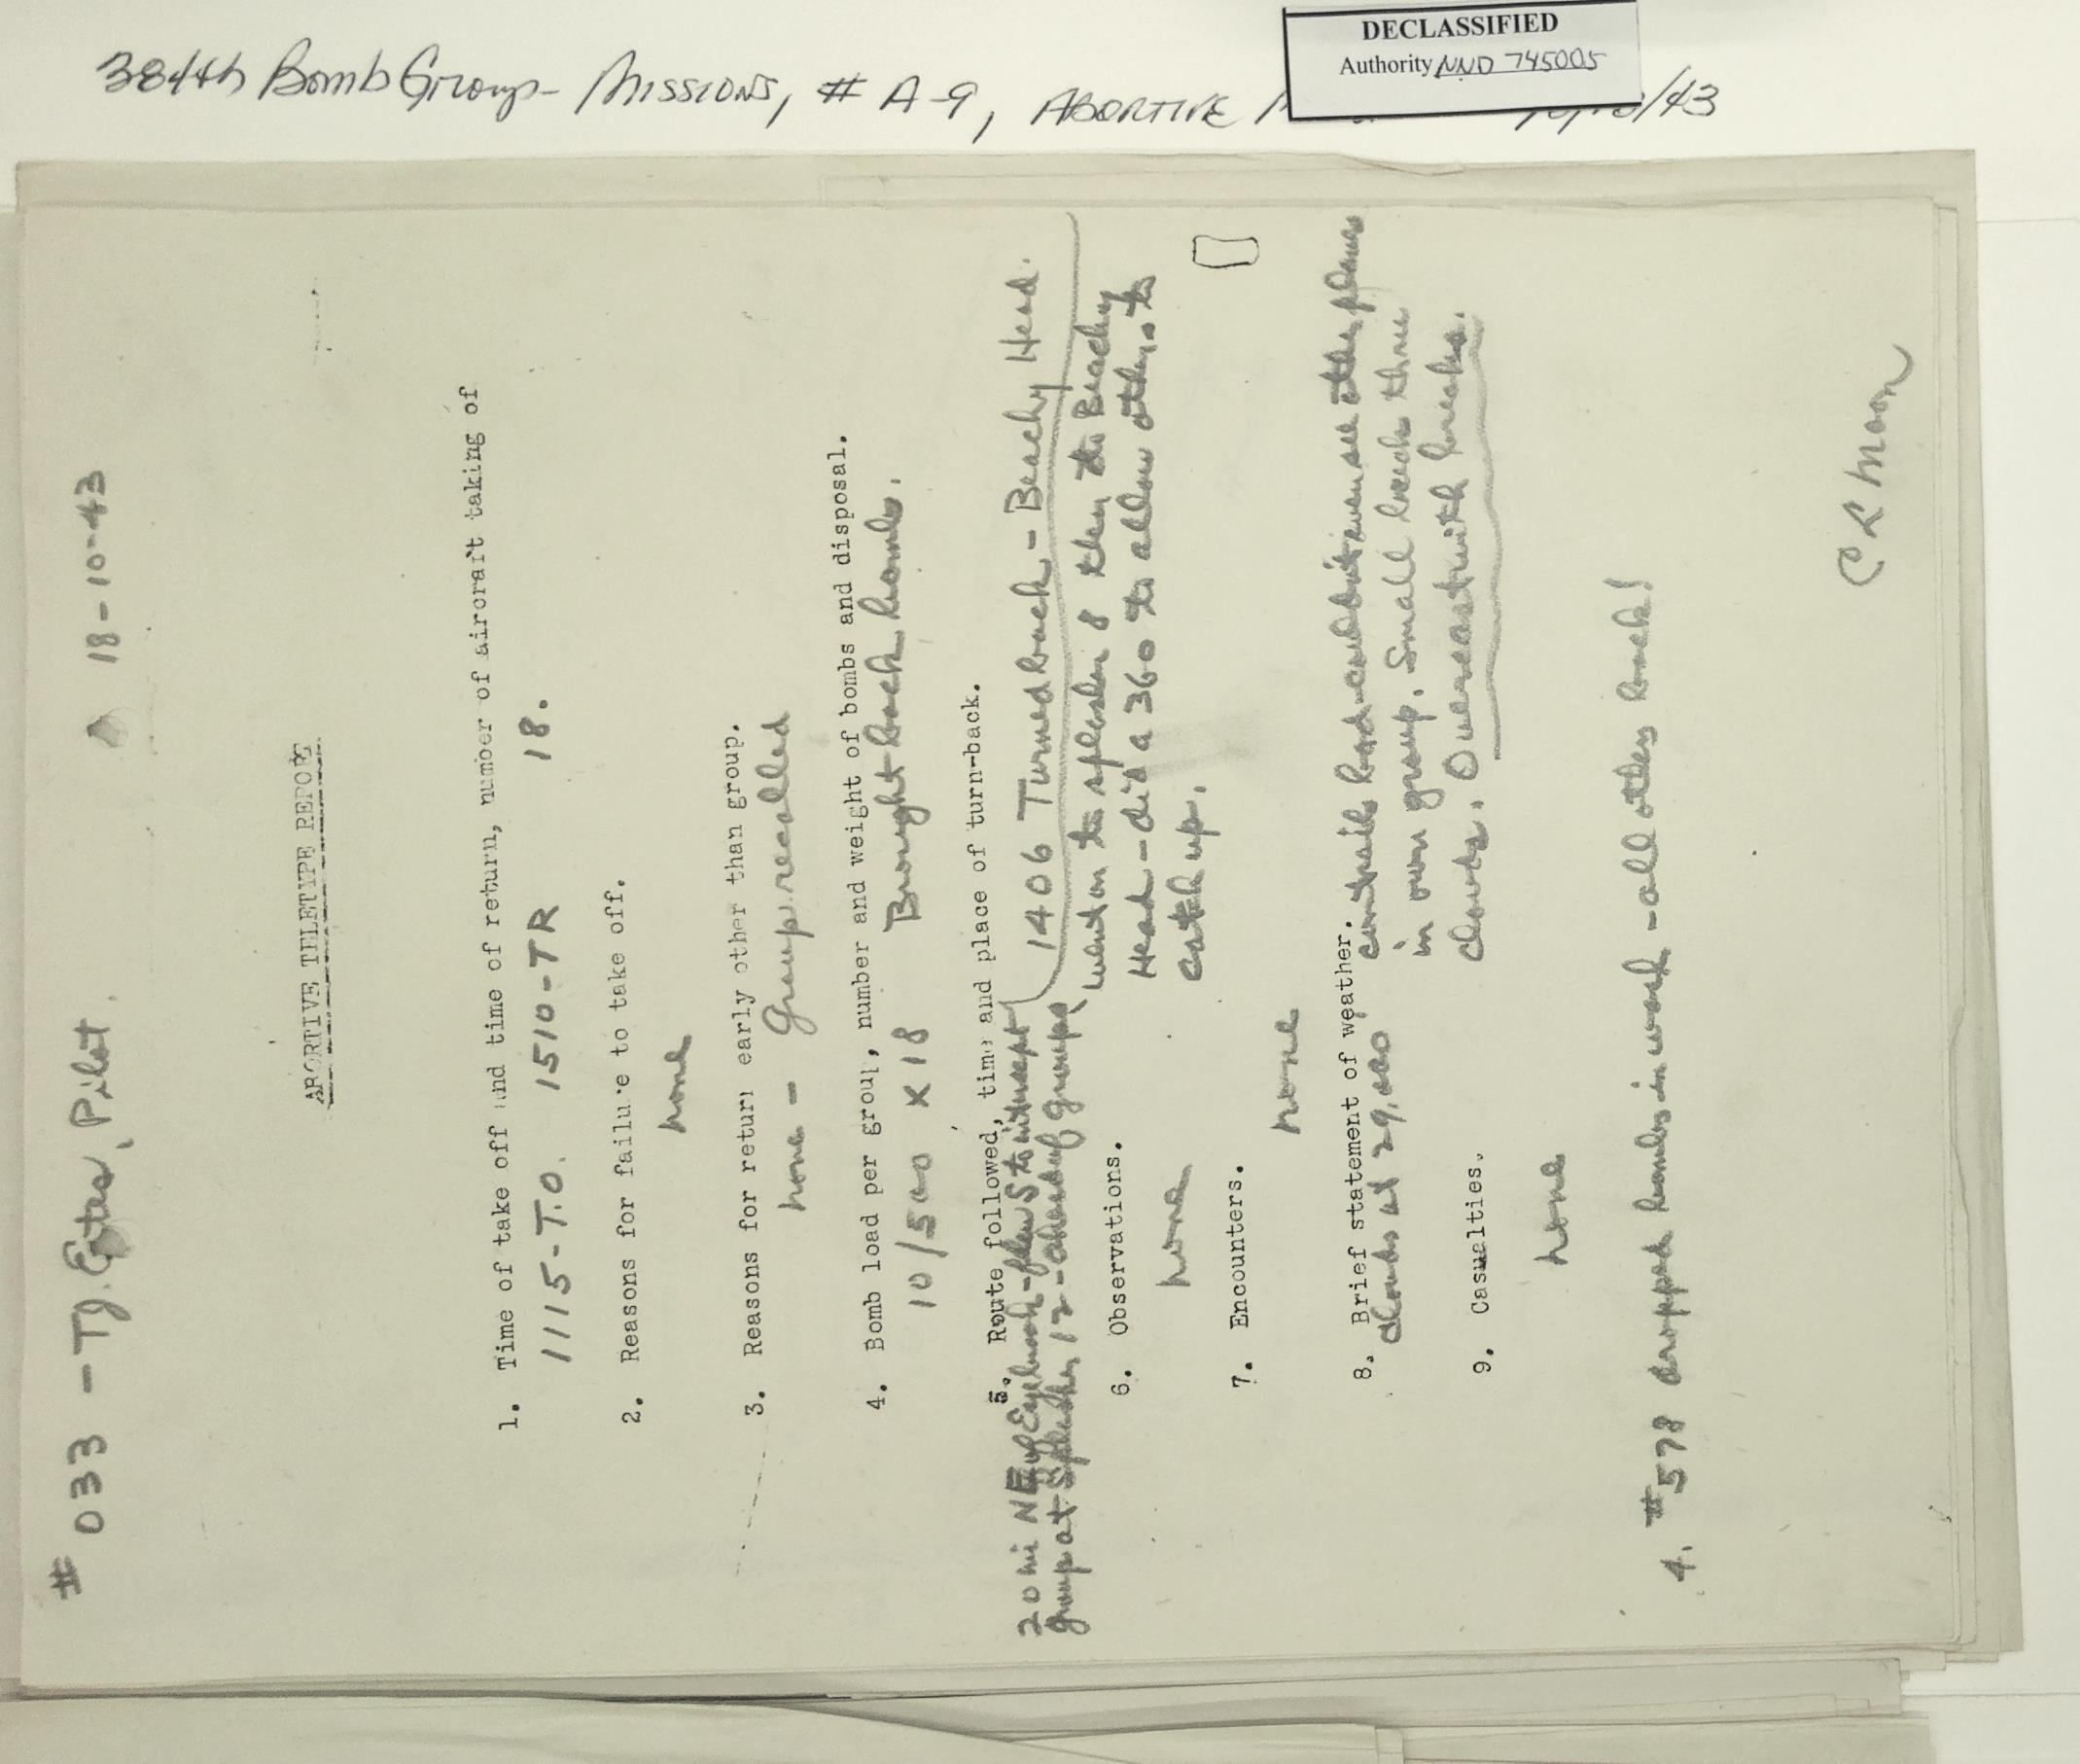 384th Bomb Group - Missions, # A-9, Abortive /43
DECLASSIFIED
Authority NND 745005
# 033 - Tg. Estes, Pilot. 18-10-43
ABORTIVE TELETYPE REPORT
1. Time of take off and time of return, number of airoraft taking of
1115-T.O. 1510-TR 18.
2. Reasons for failure to take off.
none
3. Reasons for return early other than group.
none - Group recalled
4. Bomb load per group, number and weight of bombs and disposal.
10/500 x 18 Brought back bombs.
5. Route followed, time and place of turn-back.
20 mi NE of Eyebrook - flew S to intercept 1406 Turned back - Beachy Head.
group at Splasher 12 - ahead of groups went on to splasher 8 then to Beachy
Head - did a 360 to allow others to
catch up.
6. Observations.
none
7. Encounters.
none
8. Brief statement of weather.
clouds at 29,000 contrails bad - couldn't even see other planes
in own group. Small breaks thru
clouds. Overcast with breaks.
9. Casualties.
none
4. #578 dropped bombs in wash - all others back!
C L Moon